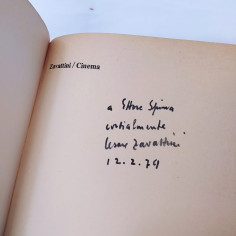 Zavattini / Cinema
a Ettore Spinna
cordialmente
Cesare Zavattini
12.2.79